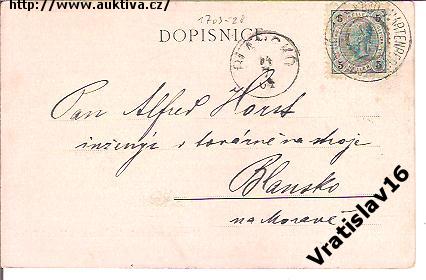 http://www.auktiva.cz/
1703-28
DOPISNICE
BLANSKO
5 5
5 5
Pan Alfred Horst
inženýr v továrně na stroje
Blansko
na Moravě
Vratislav16